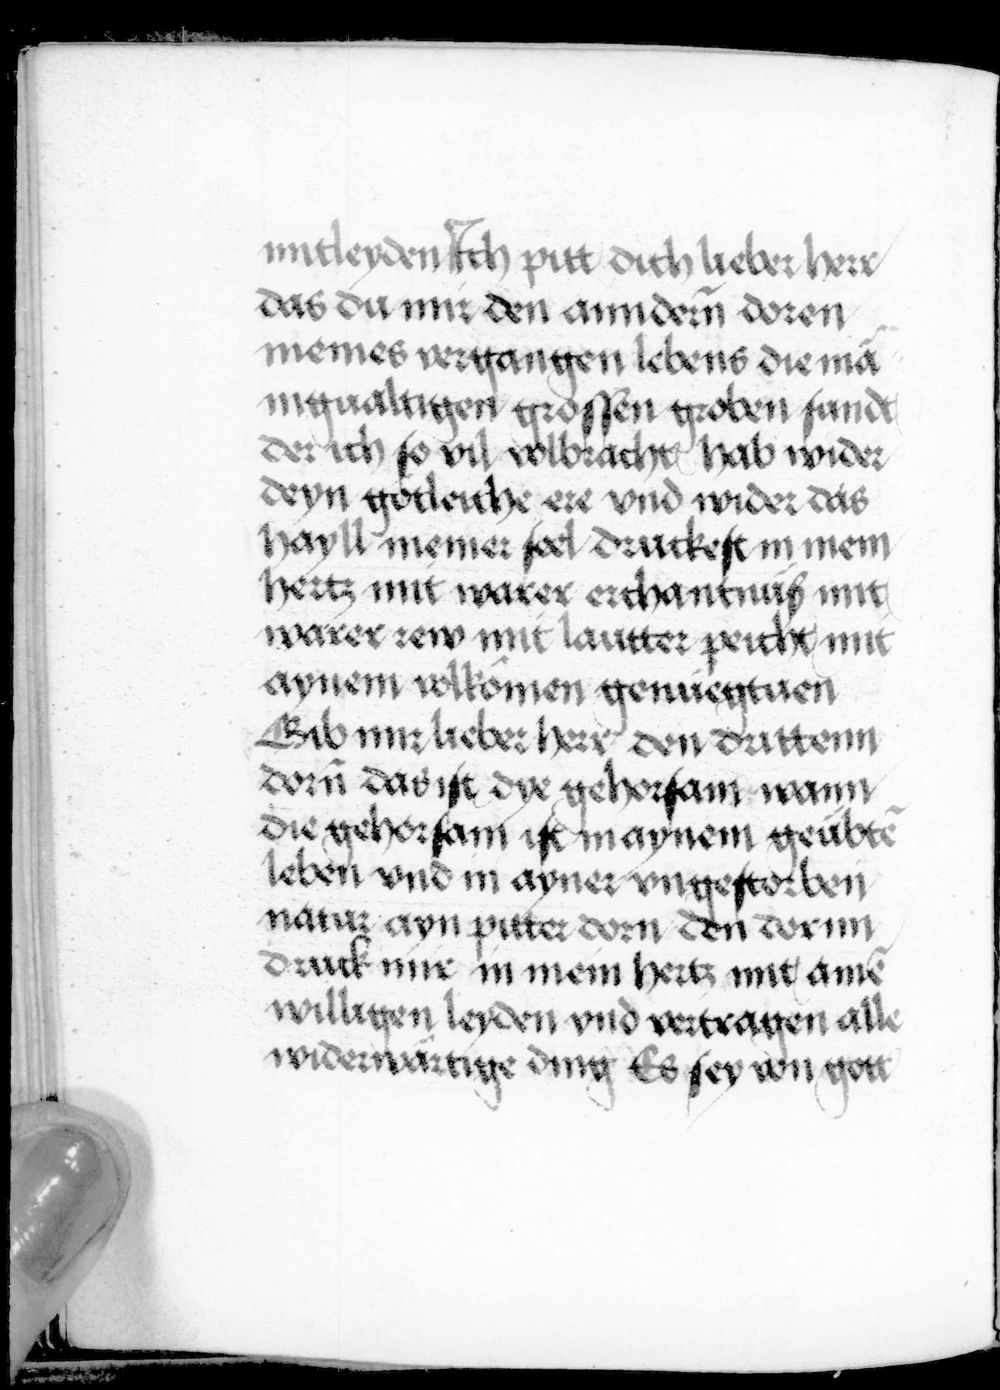 mitleyden Ich pitt dich lieber herr
das du mir den anndern̄ doren
meines vergangen lebens die mā
nigualtigen grossen groben sundt
der ich so vil volbracht hab wider
deyn götleiche ere vnd wider das
hayll meiner seel druckest in mein
hertz mit warer erchantnüß mit
warer rew mit lautter peicht mit
aynem volkōmen genüegtuen
Gib mir lieber herr den drittenn
dorn̄ das ist dye gehorsam wann
die gehorsam ist in aynem geübtē
leben vnd in ayner vngestorben
natur ayn pitter dorn den dornn
druck mir in mein hertz mit ainē
willigen leyden vnd vertragen alle
widerwärtige ding Es sey von gott